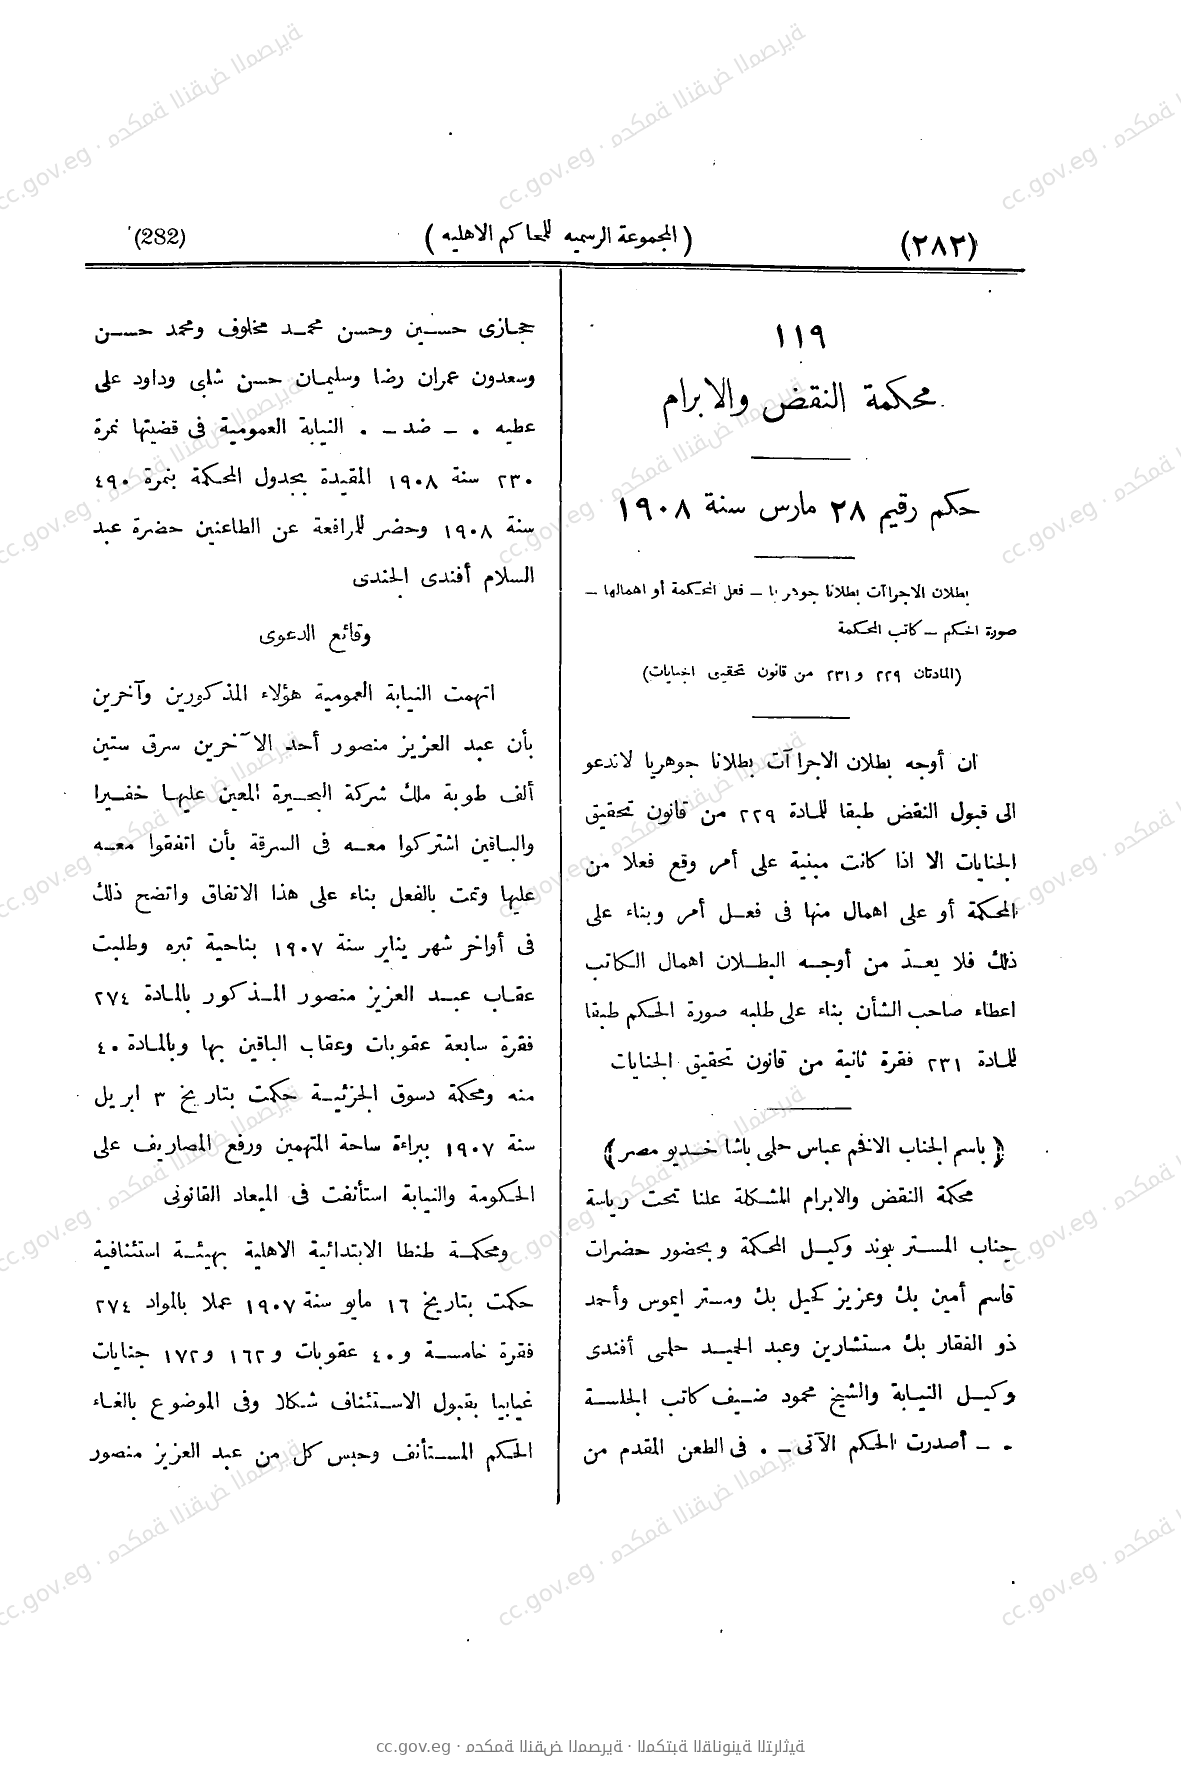 (٢٨٢)
(المجموعة الرسميه للمحاكم الاهليه)
(282)
١١٩
محكمة النقض والابرام
حكم رقيم ٢٨ مارس سنة ١٩٠٨
بطلان الاجراآت بطلانا جوهريا ــ فعل المحكمة أو اهمالها ــ
صورة الحكم ــ كاتب المحكمة
(المادتان ٢٢٩ و٢٣١ من قانون تحقيق الجنايات)
ان أوجه بطلان الاجراآت بطلانا جوهريا لاتدعو
الى قبول النقض طبقا للمادة ٢٢٩ من قانون تحقيق
الجنايات الا اذا كانت مبنية على أمر وقع فعلا من
المحكمة أو على اهمال منها فى فعل أمر وبناء على
ذلك فلا يعدّ من أوجه البطلان اهمال الكاتب
اعطاء صاحب الشأن بناء على طلبه صورة الحكم طبقا
للمادة ٢٣١ فقرة ثانية من قانون تحقيق الجنايات
(باسم الجناب الافخم عباس حلمى باشا خديو مصر)
محكمة النقض والابرام المشكلة علنا تحت رياسة
جناب المستر بوند وكيل المحكمة وبحضور حضرات
قاسم أمين بك وعزيز كحيل بك ومستر ايموس وأحمد
ذو الفقار بك مستشارين وعبد الحميد حلمى أفندى
وكيل النيابة والشيخ محمود ضيف كاتب الجلسة
٠ ــ أصدرت الحكم الآتى ــ ٠ فى الطعن المقدم من
حجازى حسين وحسن محمد مخلوف ومحمد حسن
وسعدون عمران رضا وسليمان حسن شلبى وداود على
عطيه ٠ ــ ضد ــ ٠ النيابة العمومية فى قضيتها نمرة
٢٣٠ سنة ١٩٠٨ المقيدة بجدول المحكمة بنمرة ٤٩٠
سنة ١٩٠٨ وحضر للمرافعة عن الطاعنين حضرة عبد
السلام أفندى الجندى
وقائع الدعوى
اتهمت النيابة العمومية هؤلاء المذكورين وآخرين
بأن عبد العزيز منصور أحد الآخرين سرق ستين
ألف طوبة ملك شركة البحيرة المعين عليها خفيرا
والباقين اشتركوا معه فى السرقة بأن اتفقوا معه
عليها وتمت بالفعل بناء على هذا الاتفاق واتضح ذلك
فى أواخر شهر يناير سنة ١٩٠٧ بناحية تبره وطلبت
عقاب عبد العزيز منصور المذكور بالمادة ٢٧٤
فقرة سابعة عقوبات وعقاب الباقين بها وبالمادة ٤٠
منه ومحكمة دسوق الجزئية حكمت بتاريخ ٣ ابريل
سنة ١٩٠٧ ببراءة ساحة المتهمين ورفع المصاريف على
الحكومة والنيابة استأنفت فى الميعاد القانونى
ومحكمة طنطا الابتدائية الاهلية بهيئة استئنافية
حكمت بتاريخ ١٦ مايو سنة ١٩٠٧ عملا بالمواد ٢٧٤
فقرة خامسة و٤٠ عقوبات و١٦٢ و١٧٢ جنايات
غيابيا بقبول الاستئناف شكلا وفى الموضوع بالغاء
الحكم المستأنف وحبس كل من عبد العزيز منصور
cc.gov.eg · محكمة النقض المصرية · المكتبة القانونية التراثية